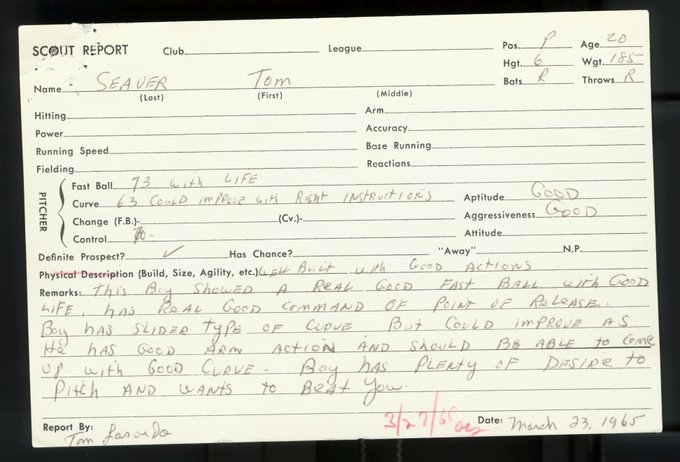 SCOUT REPORT Club League Pos. P Age 20
Hgt. 6 Wgt. 185
Name SEAVER Tom Bats R Throws R
(Last) (First) (Middle)
Hitting Arm
Power Accuracy
Running Speed Base Running
Fielding Reactions
PITCHER
Fast Ball 73 with LIFE
Curve 63 COULD IMPROVE with RIGHT INSTRUCTIONS Aptitude GOOD
Change (F.B.)- (Cv.)- Aggressiveness GOOD
Control 70- Attitude
Definite Prospect? ✓ Has Chance? "Away" N.P.
Physical Description (Build, Size, Agility, etc.) WELL BUILT with GOOD ACTIONS
Remarks: THIS BOY SHOWED A REAL GOOD FAST BALL with GOOD
LIFE, HAS REAL GOOD COMMAND OF POINT OF RELEASE.
BOY HAS SLIDER TYPE OF CURVE BUT COULD IMPROVE AS
HE HAS GOOD ARM ACTION AND SHOULD BE ABLE to COME
UP with GOOD CURVE - BOY HAS PLENTY OF DESIRE to
PITCH AND WANTS to BEAT YOU.
Report By: Tom Lasorda 3/27/65 Date: March 23, 1965